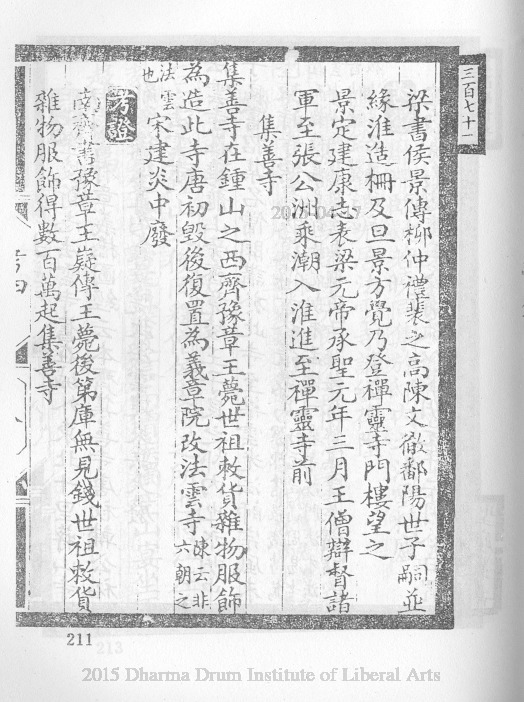 三百七十一
梁書侯景傳柳仲禮裴之高陳文徹鄱陽世子嗣並
緣淮造柵及旦景方覺乃登禪靈寺門樓望之
景定建康志表梁元帝承聖元年三月王僧辯督諸
軍至張公洲乘潮入淮進至禪靈寺前
集善寺
集善寺在鍾山之西齊豫章王薨世祖敕貨雜物服飾
為造此寺唐初毀後復置為義章院改法雲寺陳云非六朝之
法雲也宋建炎中廢
考證
南齊書豫章王嶷傳王薨後第庫無見錢世祖敕貨
雜物服飾得數百萬起集善寺
211
2015 Dharma Drum Institute of Liberal Arts